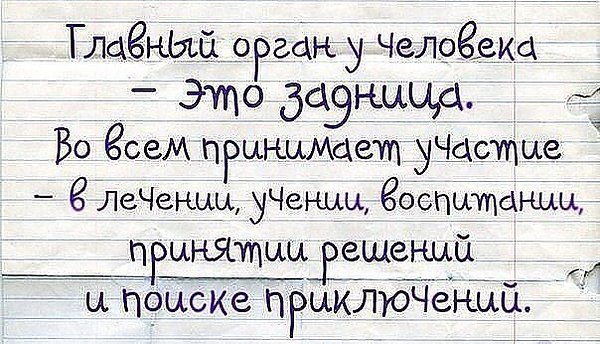 Главный орган у человека
- это задница.
Во всем принимает участие
- в лечении, учении, воспитании,
принятии решений
и поиске приключений.